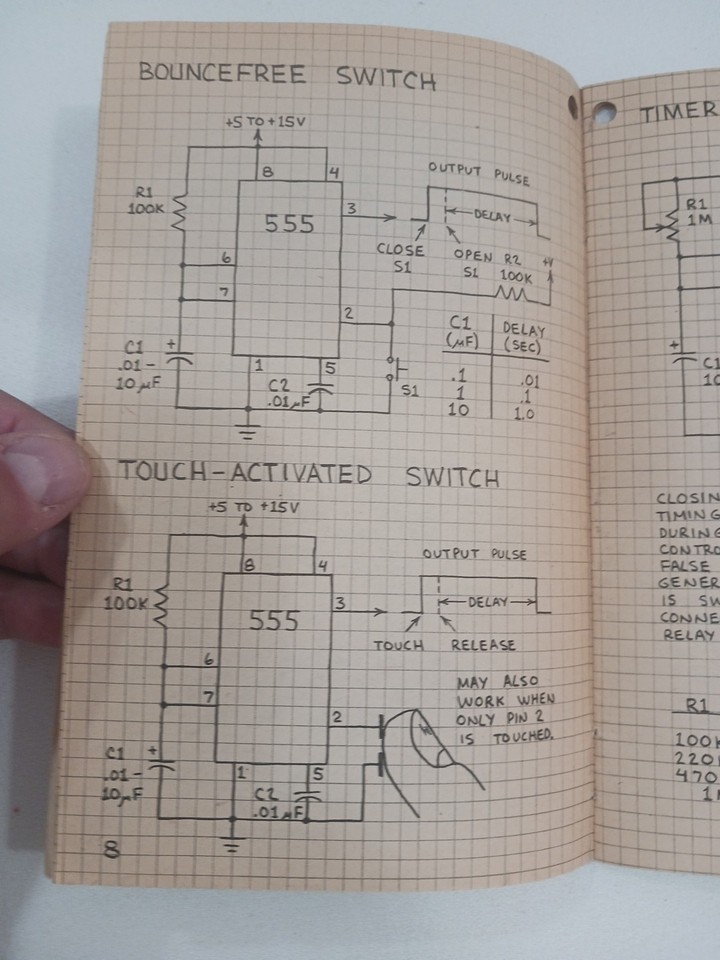 BOUNCEFREE SWITCH
+5 TO +15V
8
4
R1
100K
555
3
OUTPUT PULSE
DELAY
CLOSE
S1
OPEN
S1
R2
100K
+V
6
7
2
C1
+
.01-
10µF
1
5
C2
.01µF
S1
C1
(µF)
DELAY
(SEC)
.1 .01
1 .1
10 1.0
TOUCH-ACTIVATED SWITCH
+5 TO +15V
8
4
R1
100K
555
3
OUTPUT PULSE
DELAY
TOUCH RELEASE
6
7
2
MAY ALSO
WORK WHEN
ONLY PIN 2
IS TOUCHED.
C1
+
.01-
10µF
1
5
C2
.01µF
8
TIMER
R1
1M
+
C1
CLOSIN
TIMING
DURING
CONTRO
FALSE
GENER
IS SW
CONNE
RELAY
R1
100K
220
470
1